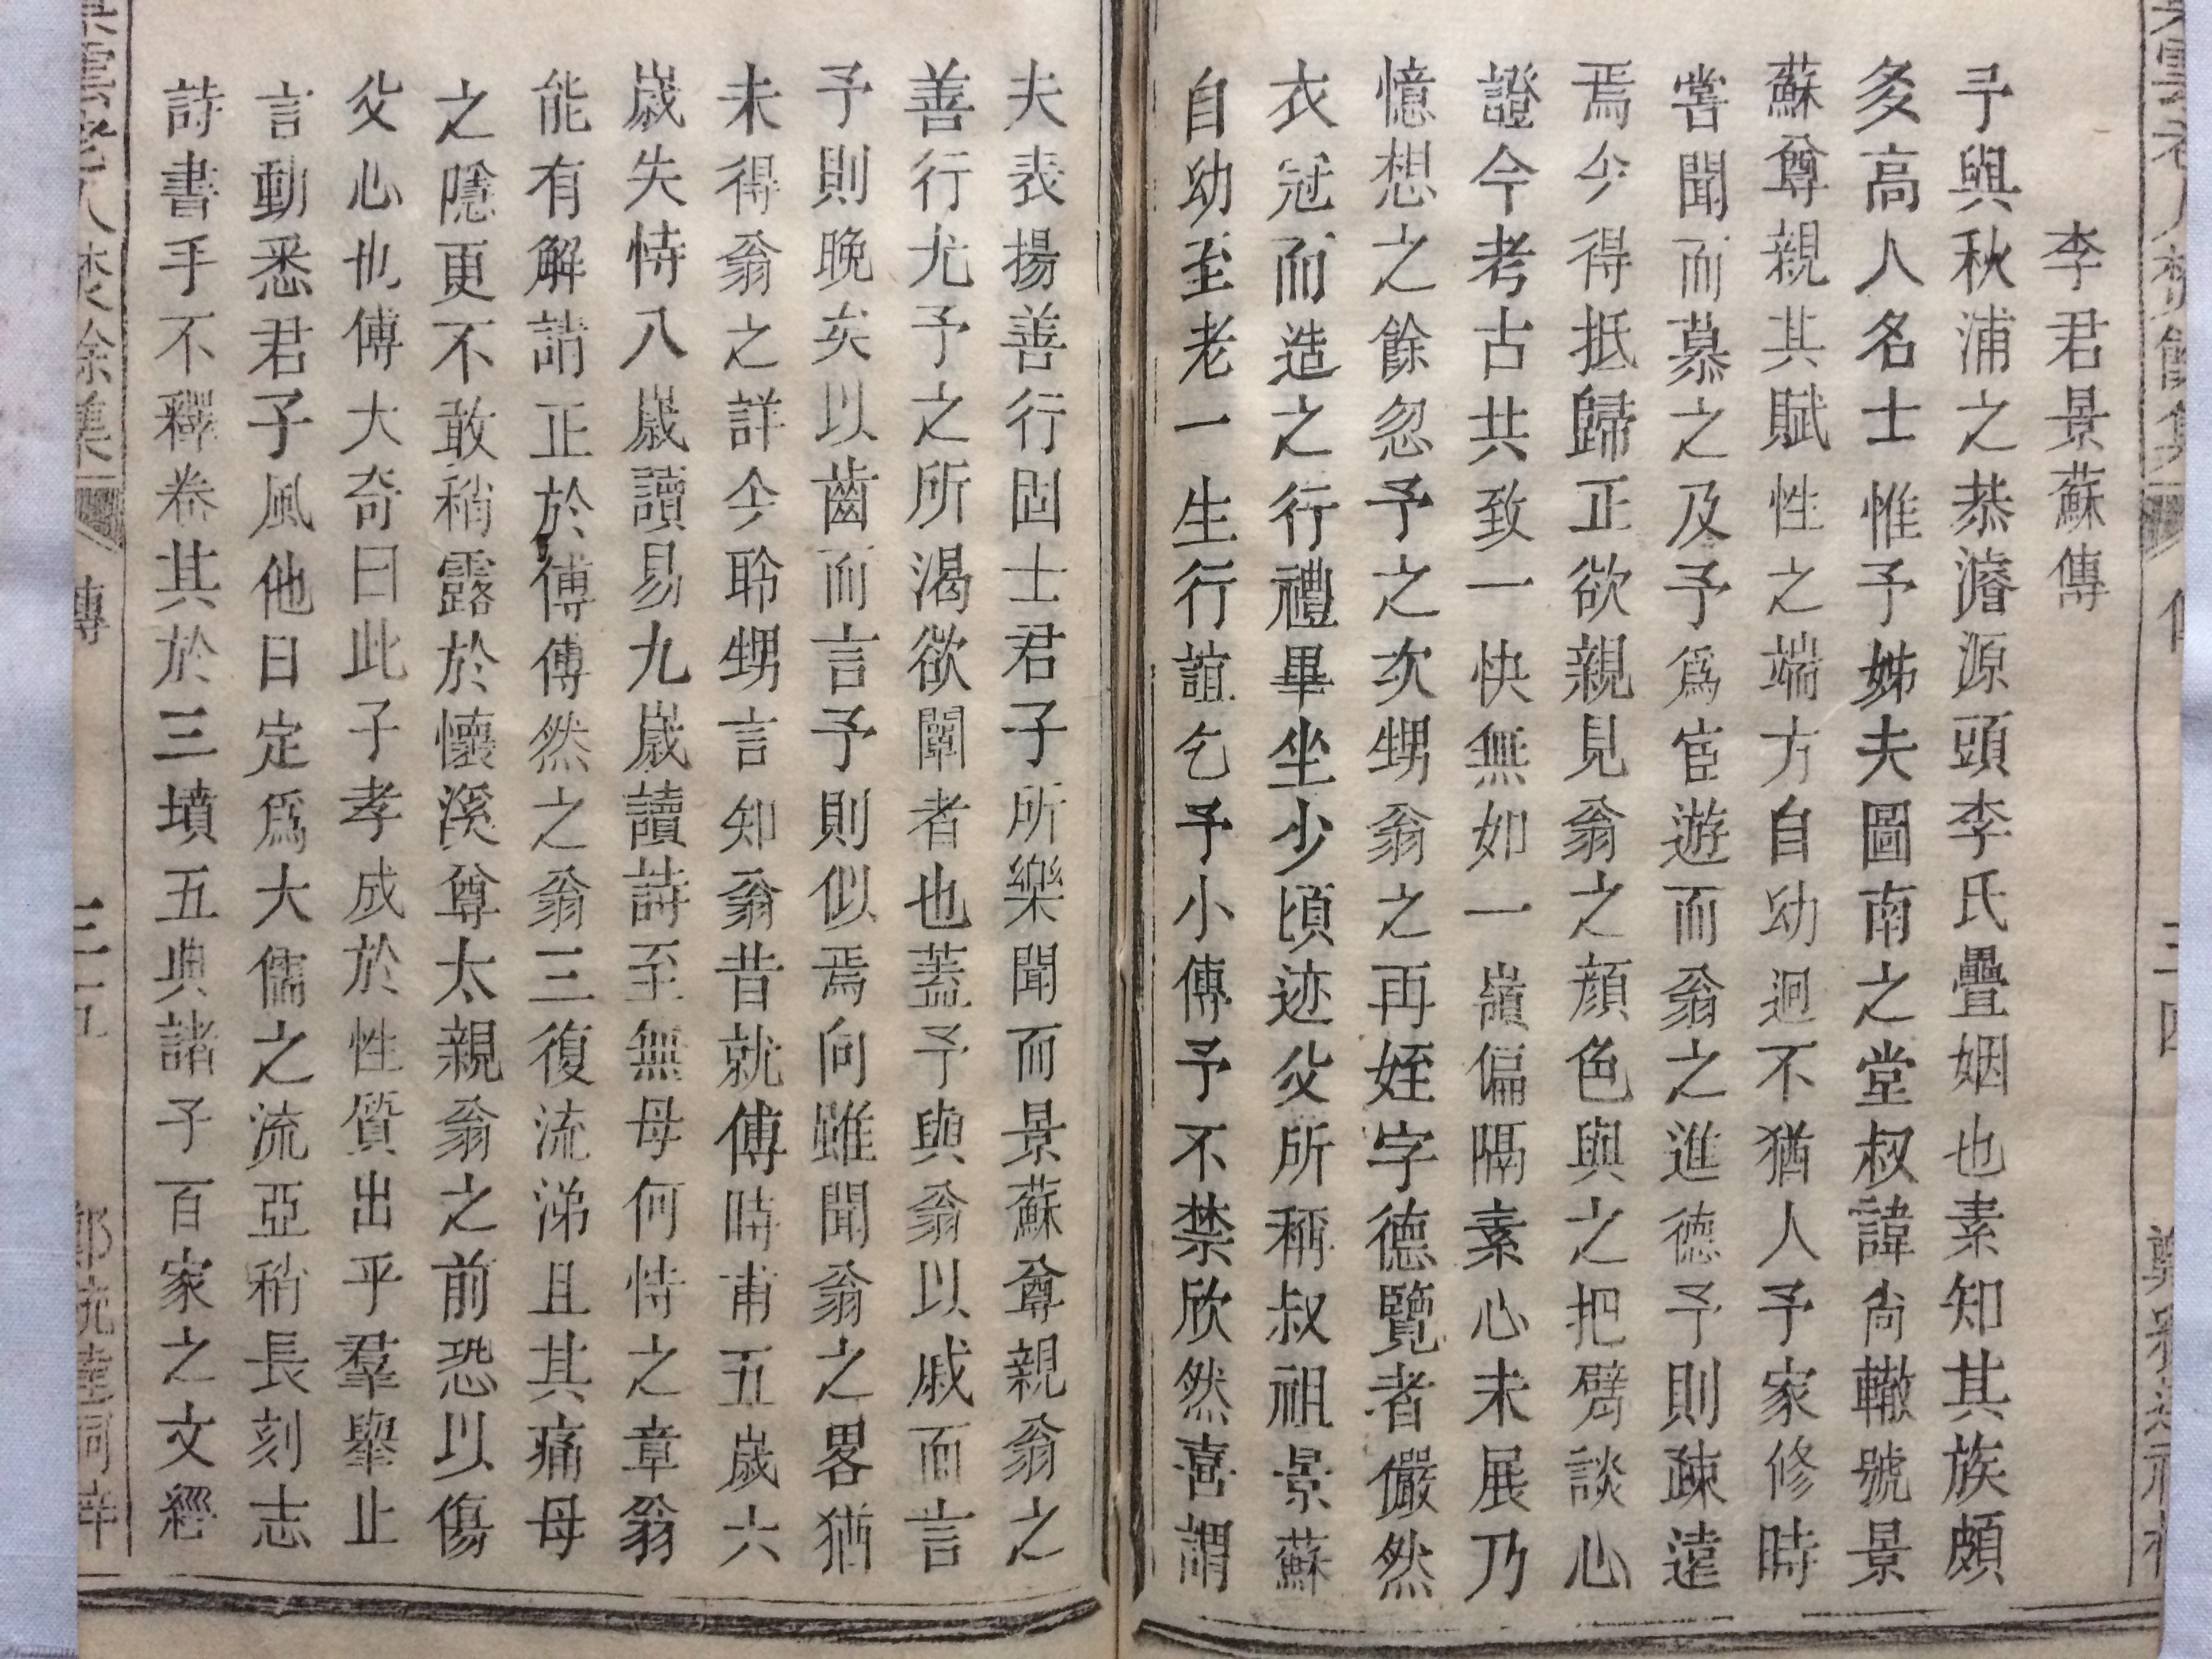 李君景蘇傳
予與秋浦之恭濬源頭李氏疊姻也素知其族頗
多高人名士惟予姊夫圖南之堂叔諱尙轍號景
蘇尊親其賦性之端方自幼迥不猶人予家修時
嘗聞而慕之及予爲宦遊而翁之進德予則疎遠
焉今得抵歸正欲親見翁之顔色與之把臂談心
證今考古共致一快無如一嶺偏隔素心未展乃
憶想之餘忽予之次甥翁之再姪字德覽者儼然
衣冠而造之行禮畢坐少頃迹父所稱叔祖景蘇
自幼至老一生行誼乞予小傳予不禁欣然喜謂
夫表揚善行固士君子所樂聞而景蘇尊親翁之
善行尤予之所渴欲闡者也蓋予與翁以戚而言
予則晚矣以齒而言予則似焉向雖聞翁之畧猶
未得翁之詳今聆甥言知翁昔就傅時甫五歲六
歲失恃八歲讀易九歲讀詩至無母何恃之章翁
能有解請正於傅傅然之翁三復流涕且其痛母
之隱更不敢稍露於懷溪尊太親翁之前恐以傷
父心也傅大奇曰此子孝成於性質出乎羣舉止
言動悉君子風他日定爲大儒之流亞稍長刻志
詩書手不釋卷其於三墳五典諸子百家之文經
傳